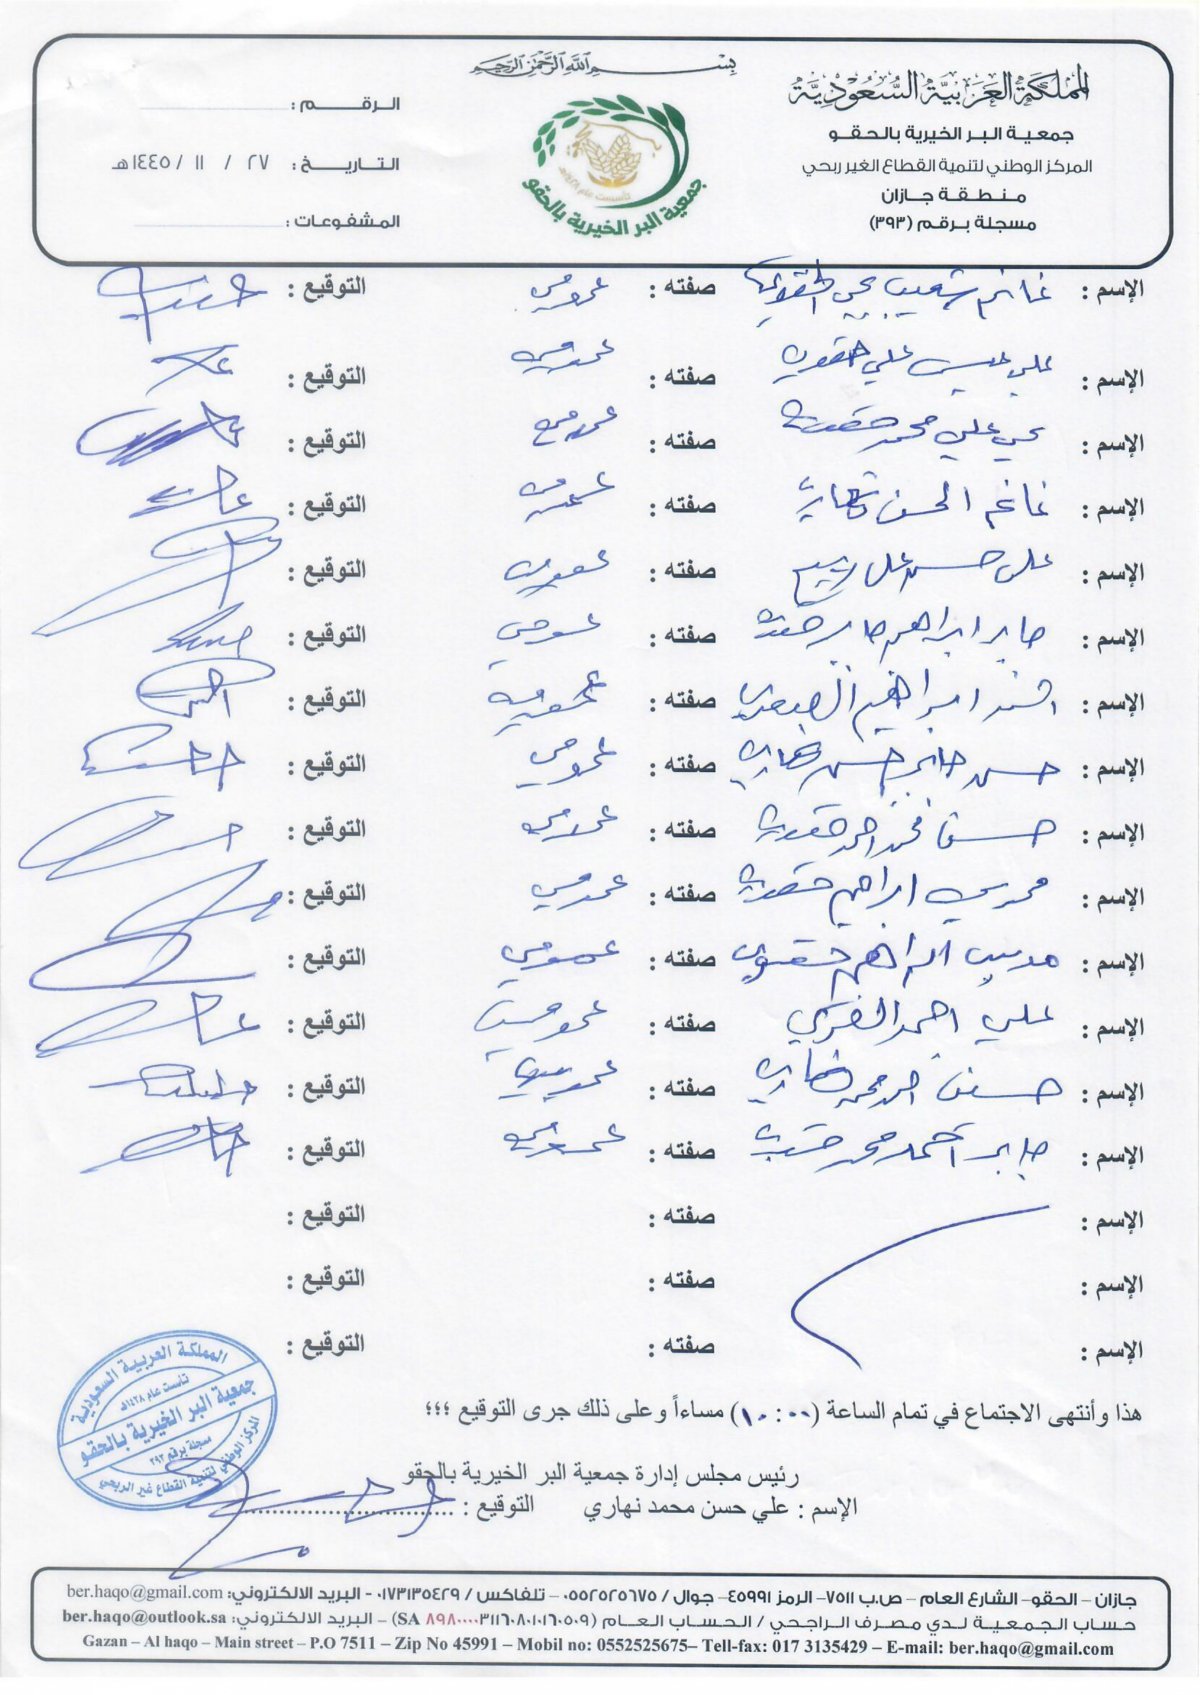 بسم الله الرحمن الرحيم
المملكة العربية السعودية
جمعية البر الخيرية بالحقو
المركز الوطني لتنمية القطاع الغير ربحي
منطقة جازان
مسجلة برقم (٣٩٣)
تأسست عام ١٤٣٨هـ
جمعية البر الخيرية بالحقو
الرقم :
التاريخ : ٢٧ / ١١ / ١٤٤٥هـ
المشفوعات :
الإسم : غانم شعيب يحي الحقوي صفته : عمومي التوقيع :
الإسم : علي علي حقوي صفته : عمومي التوقيع :
الإسم : يحي علي محمد حقوي صفته : عمومي التوقيع :
الإسم : غانم الحسن نهاري صفته : عمومي التوقيع :
الإسم : علي حسن علي ربيع صفته : عمومي التوقيع :
الإسم : جابر ابراهيم جابر حقوي صفته : عمومي التوقيع :
الإسم : ابراهيم صفته : عمومي التوقيع :
الإسم : حسن جابر حسن نهاري صفته : عمومي التوقيع :
الإسم : حسن محمد احمد حقوي صفته : عمومي التوقيع :
الإسم : ابراهيم حقوي صفته : عمومي التوقيع :
الإسم : ابراهيم حقوي صفته : عمومي التوقيع :
الإسم : علي احمد صفته : عمومي التوقيع :
الإسم : حسن احمد محمد نهاري صفته : عمومي التوقيع :
الإسم : جابر احمد محمد صفته : عمومي التوقيع :
الإسم : صفته : التوقيع :
الإسم : صفته : التوقيع :
الإسم : صفته : التوقيع :
هذا وأنتهى الاجتماع في تمام الساعة (١٠:٠٠) مساءاً وعلى ذلك جرى التوقيع ؛؛؛
رئيس مجلس إدارة جمعية البر الخيرية بالحقو
الإسم : علي حسن محمد نهاري التوقيع : ..............................
المملكة العربية السعودية
تأسست عام ١٤٣٨هـ
جمعية البر الخيرية بالحقو
مسجلة برقم ٣٩٣
المركز الوطني لتنمية القطاع غير الربحي
جازان – الحقو- الشارع العام – ص.ب ٧٥١١- الرمز ٤٥٩٩١- جوال / ٠٥٥٢٥٢٥٦٧٥ – تلفاكس / ٠١٧٣١٣٥٤٢٩ - البريد الالكتروني: ber.haqo@gmail.com
حساب الجمعية لدي مصرف الراجحي / الحساب العام (SA ٨٩٨٠٠٠٠٣١١٦٠٨٠١٠١٦٠٥٠٩) – البريد الالكتروني: ber.haqo@outlook.sa
Gazan – Al haqo – Main street – P.O 7511 – Zip No 45991 – Mobil no: 0552525675– Tell-fax: 017 3135429 – E-mail: ber.haqo@gmail.com